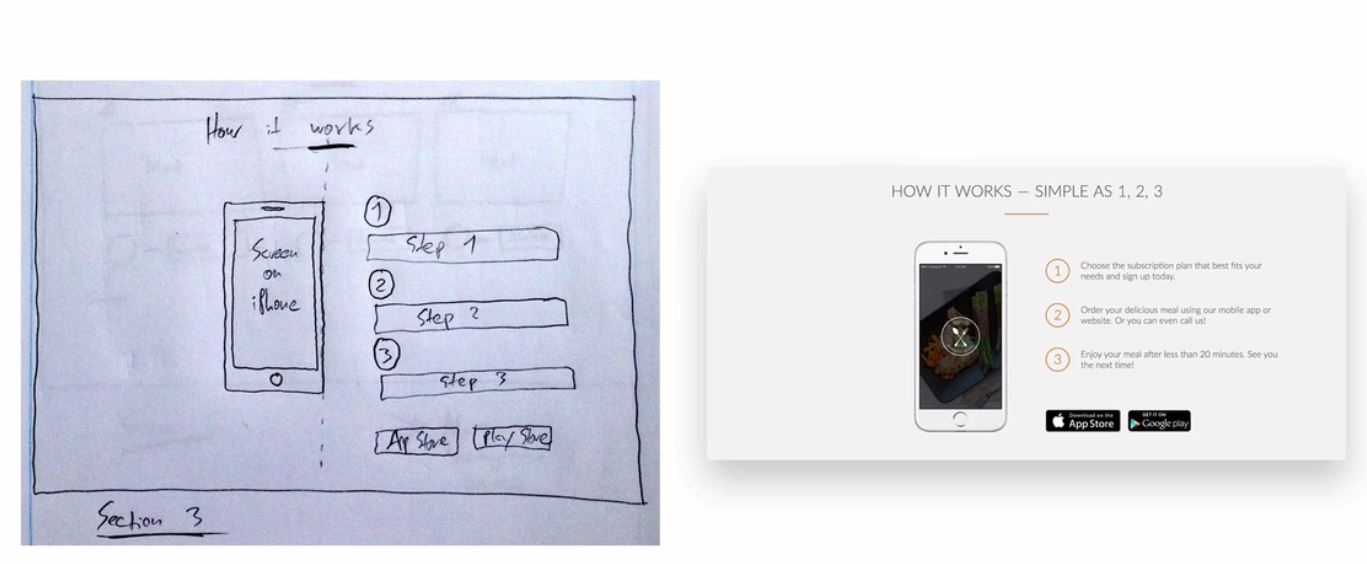 How it works
Screen
on
iPhone
1
Step 1
2
Step 2
3
Step 3
App Store
Play Store
Section 3
HOW IT WORKS — SIMPLE AS 1, 2, 3
1
Choose the subscription plan that best fits your
needs and sign up today.
2
Order your delicious meal using our mobile app or
website. Or you can even call us!
3
Enjoy your meal after less than 20 minutes. See you
the next time!
Download on the
App Store
GET IT ON
Google play